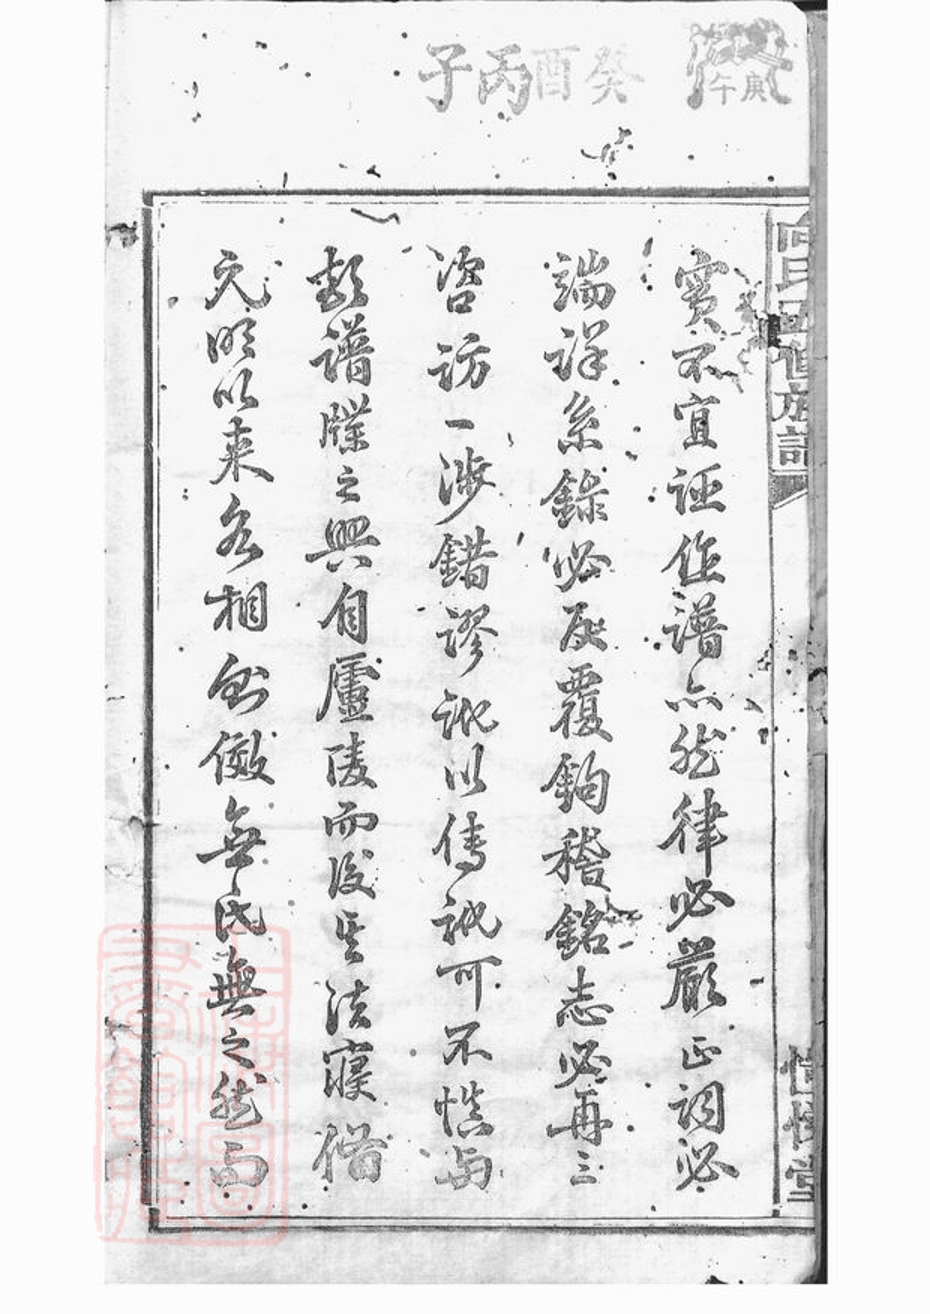 庚午
癸酉丙子
向氏五修族譜
實不宜誣作譜亦然律必嚴正詞必
端詳系錄必反覆鉤稽銘志必再三
咨訪一涉錯謬訛以傳訛可不慎與
顧譜牒之興自廬陵而後其法寖備
元明以来各相傚無氏無之然而